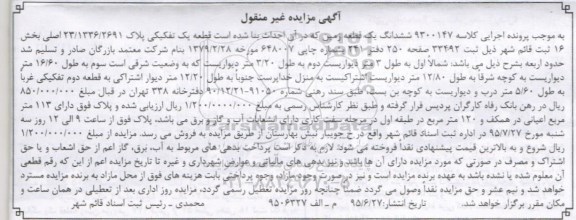 آگهی مزایده غیر منقول
به موجب پرونده اجرایی کلاسه ۹۳۰۰۱۴۷ ششدانگ یک قطعه زمین که در آن احداث بنا شده است قطعه یک تفکیکی پلاک ۲۳/۱۳۳۶/۲۶۹۱ اصلی بخش
۱۶ ثبت قائم شهر ذیل ثبت ۳۳۴۹۲ صفحه ۲۵۰ دفتر چاپی ۶۴۸۰۰۷ مورخه ۱۳۷۹/۲/۲۸ بنام شرکت معتمد بازرگان صادر و تسلیم شد
حدود اربعه بشرح ذیل می باشد: شمالاً اول به طول دیواریست دوم به طول ۳/۲۰ متر دیواریست که به وضعیت شرقی است سوم به طول ۱۶/۶۰ متر
دیواریست به کوچه شرقاً به طول ۱۲/۸۰ متر دیواریست اشتراکیست به منزل خداپرست جنوباً به طول ۱۲/۳۰ متر دیوار اشتراکی به قطعه دوم تفکیکی غرباً
به طول ۵/۶۰ متر درب و دیواریست به کوچه بن بست طبق سند رهنی شماره ۹۱۰۵۰-۹۰/۱۲/۲۱ دفترخانه ۳۳۸ تهران در قبال مبلغ ۸۵۰/۰۰۰/۰۰۰
ریال در رهن بانک رفاه کارگران پردیس قرار گرفته و طبق نظر کارشناس رسمی به مبلغ ۱/۲۰۰/۰۰۰/۰۰۰ ریال ارزیابی شده و پلاک فوق دارای ۱۱۳ متر
مربع اعیانی در همکف و ۱۲۰ متر مربع در طبقه اول در مرحله سفت کاری دارای انشعابات آب و گاز و برق می باشد، پلاک فوق از ساعت ۹ الی ۱۲ روز سه
شنبه مورخ ۹۵/۷/۲۷ در اداره ثبت اسناد ثبت قائم شهر واقع در خیابان از طریق مزایده به فروش می رسد. مزایده از مبلغ ۱/۲۰۰/۰۰۰/۰۰۰
ریال شروع و به بالاترین قیمت پیشنهادی نقداً فروخته می شود: لازم به ذکر است پرداخت بدهی های مربوطه به آب، برق، گاز اعم از حق انشعاب و یا حق
اشتراک و مصرف در صورتی که مورد مزایده دارای آن ها باشد و نیز بدهی های مالیاتی و عوارض شهرداری و غیره تا تاریخ مزایده اعم از این که رقم قطعی
آن معلوم شده یا نشده باشد به عهده برنده مزایده است و نیز در صورت وجود مازاد، وجوه پرداختی بابت هزینه های فوق از محل مازاد به برنده مزایده مسترد
خواهد شد و نیم عشر و حق مزایده نقداً وصول می گردد ضمناً چنانچه روز مزایده تعطیل رسمی گردد، مزایده روز اداری بعد از تعطیلی در همان ساعت و
مکان مقرر برگزار خواهد شد. تاریخ انتشار: ۹۵/۶/۲۷ م . الف ۹۵۰۶۳۲۷ محمدی - رئیس ثبت اسناد قائم شهر